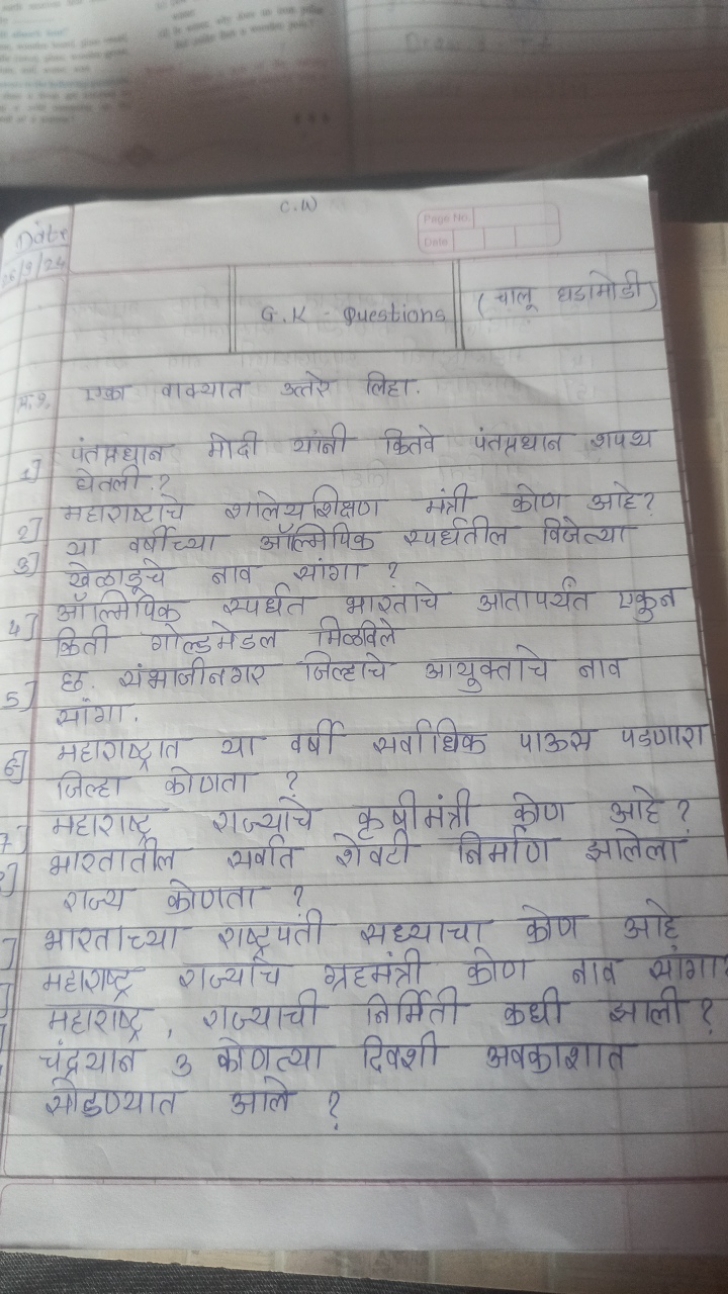 C.W
Page No.
Date
Date
G.K - Questions
(चालू घडामोडी)
एका वाक्यात उत्तरे लिहा.
पंतप्रधान मोदी यांनी कितवे पंतप्रधान शपथ
1] घेतली.?
महाराष्टाचे शालेयशिक्षण मंत्री कोण आहे?
2] या वर्षीच्या ऑल्मिपिक स्पर्धेतील विजेत्या
3] खेळाडूचे नाव सांगा ?
ऑल्मिपिक स्पर्धेत भारताचे आतापर्यंत एकुन
4] किती गोल्डमेडल मिळविले
छ. संभाजीनगर जिल्हाचे आयुक्ताचे नाव
5] सांगा.
महाराष्ट्रात या वर्षी सर्वाधिक पाऊस पडणारा
6] जिल्हा कोणता ?
महाराष्ट्र राज्याचे कृषीमंत्री कोण आहे?
7] भारतातील सर्वात शेवटी निर्माण झालेला
राज्य कोणता ?
भारताच्या राष्ट्रपती सध्याचा कोण आहे
महाराष्ट्र राज्याचे ग्रहमंत्री कोण नाव सांगा?
महाराष्ट्र, राज्याची निर्मिती कधी झाली ?
चंद्रयान 3 कोणत्या दिवशी अवकाशात
सोडण्यात आले ?